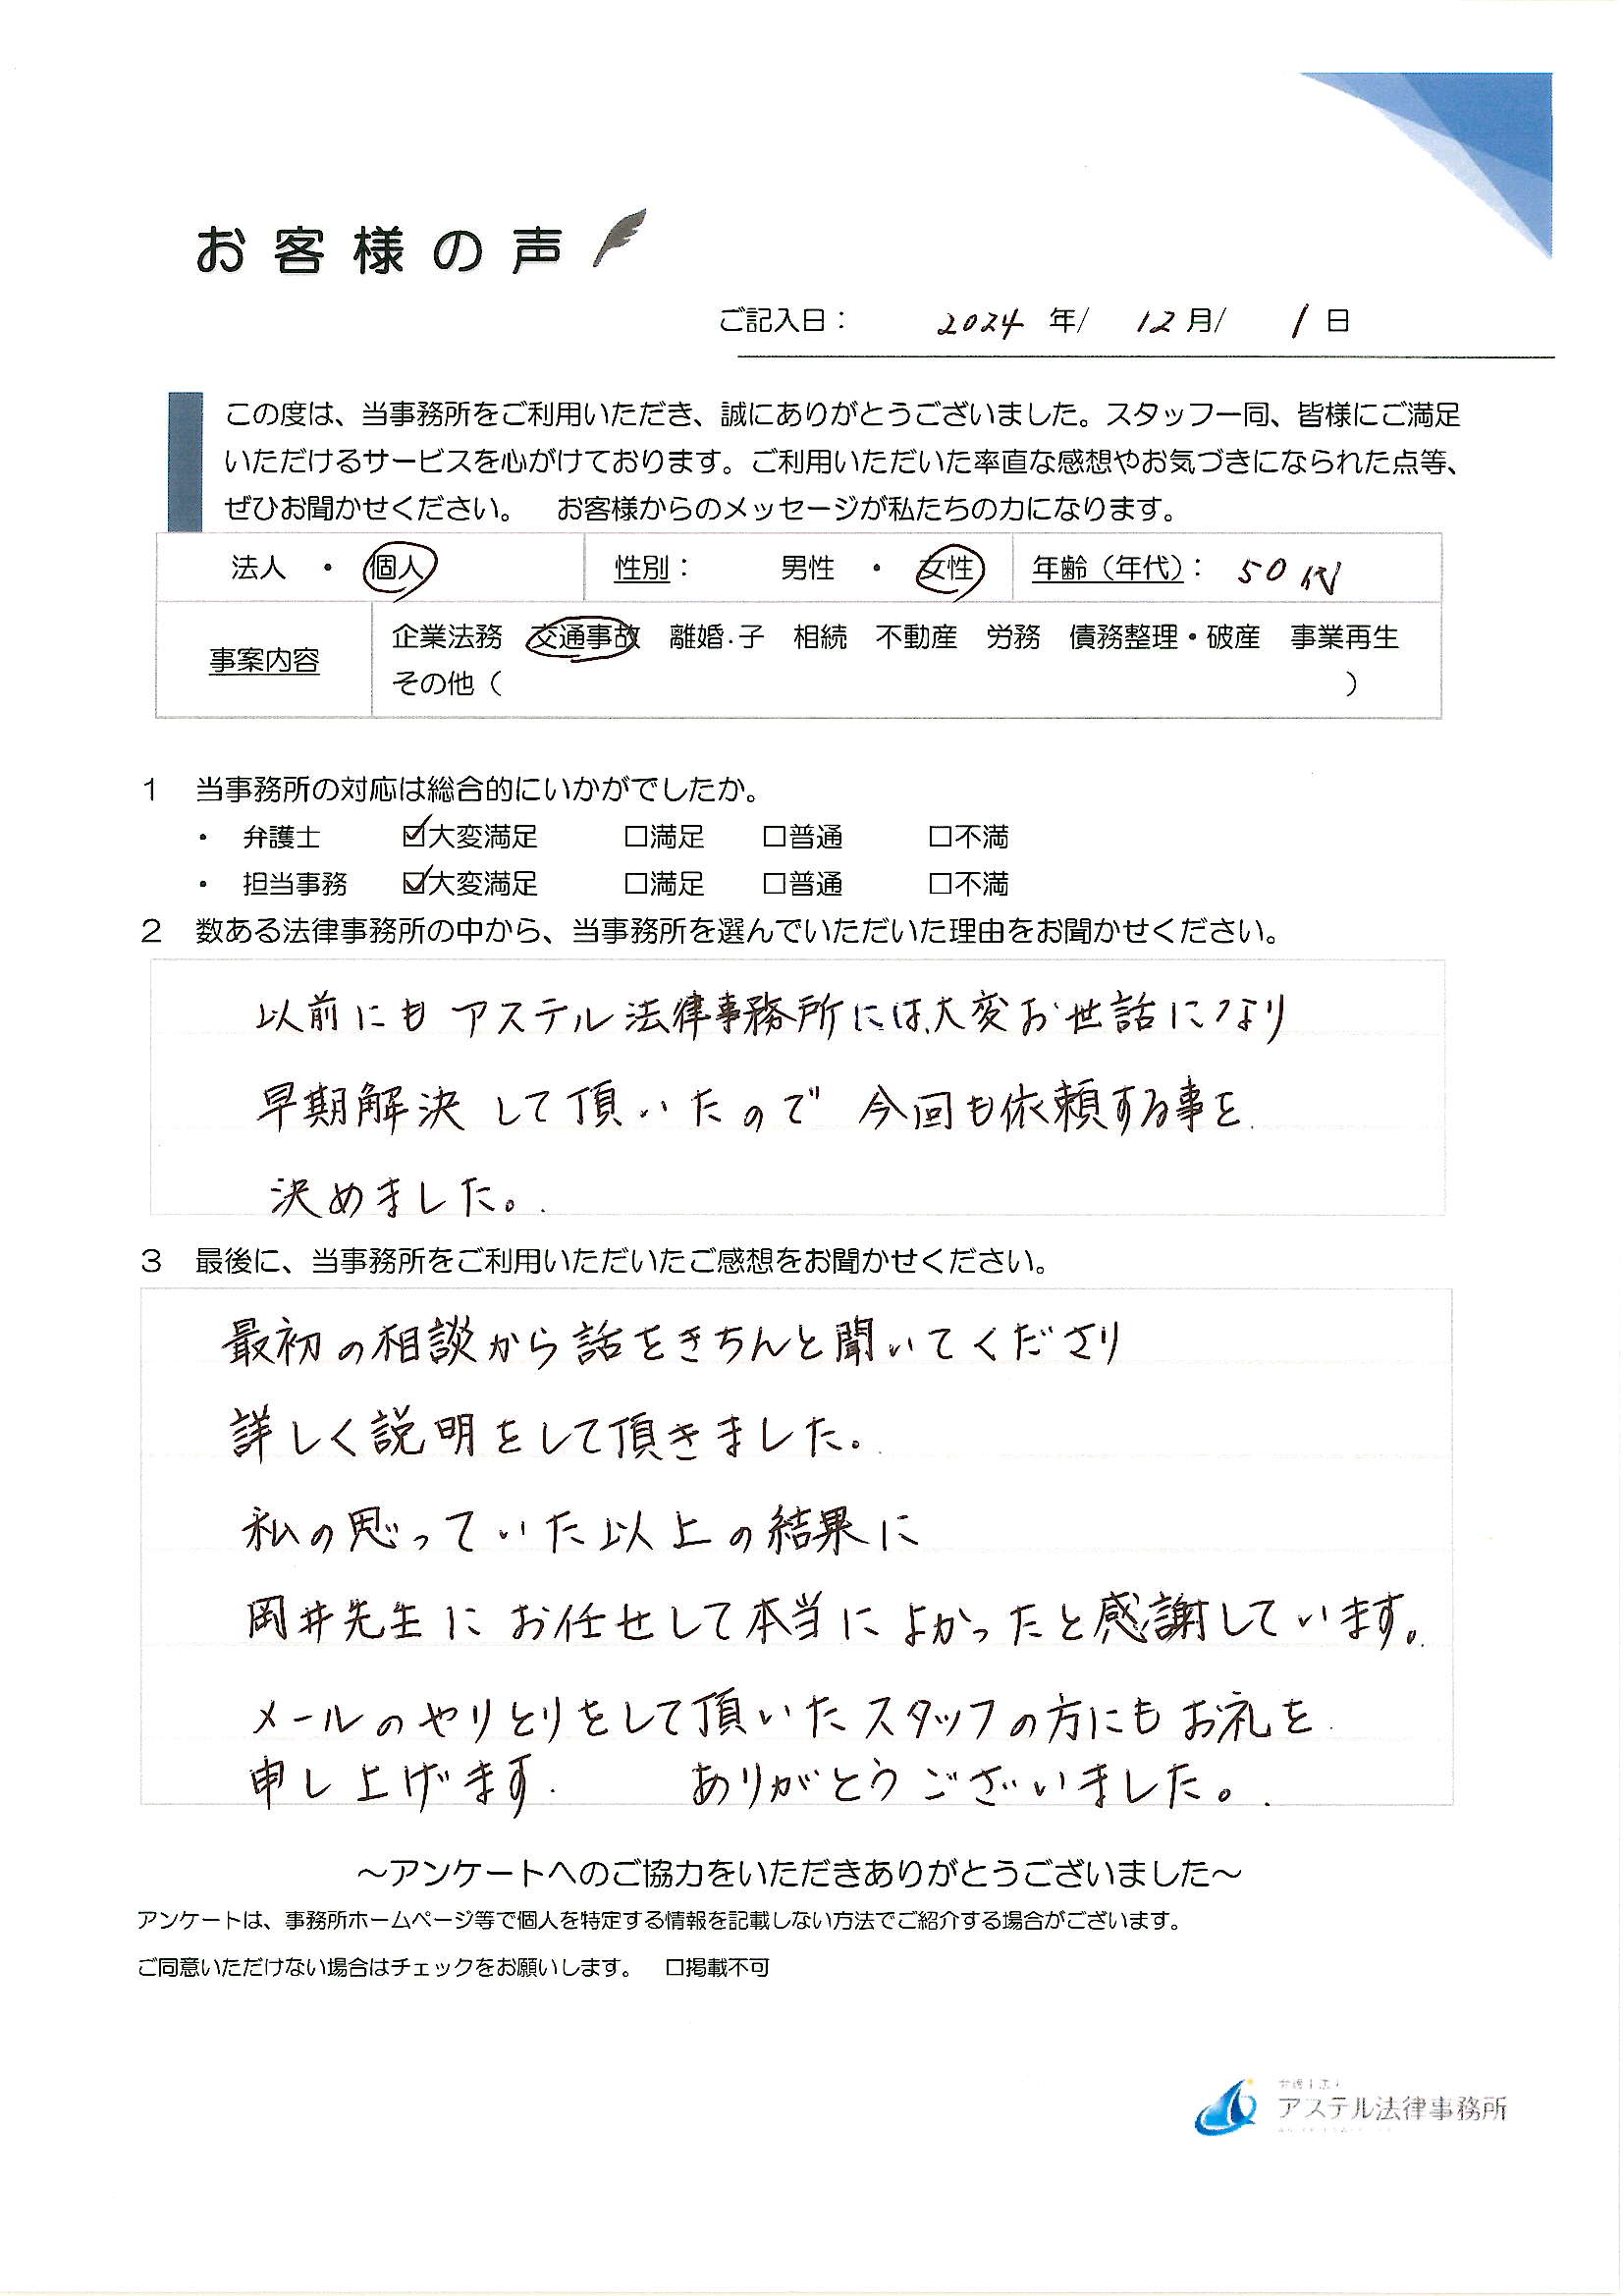 お客様の声
ご記入日： 2024 年/ 12 月/ 1 日
この度は、当事務所をご利用いただき、誠にありがとうございました。スタッフ一同、皆様にご満足
いただけるサービスを心がけております。ご利用いただいた率直な感想やお気づきになられた点等、
ぜひお聞かせください。 お客様からのメッセージが私たちの力になります。
法人 ・ 個人 性別： 男性 ・ 女性 年齢（年代）： 50代
事案内容 企業法務 交通事故 離婚・子 相続 不動産 労務 債務整理・破産 事業再生
その他（ ）
1 当事務所の対応は総合的にいかがでしたか。
・ 弁護士 ☑大変満足 □満足 □普通 □不満
・ 担当事務 ☑大変満足 □満足 □普通 □不満
2 数ある法律事務所の中から、当事務所を選んでいただいた理由をお聞かせください。
以前にも アステル法律事務所には、大変お世話になり
早期解決 して頂いたので 今回も依頼する事を
決めました。
3 最後に、当事務所をご利用いただいたご感想をお聞かせください。
最初の相談から話をきちんと聞いてくださり
詳しく説明をして頂きました。
私の思っていた以上の結果に
岡井先生に お任せして本当に よかったと感謝しています。
メールのやりとりをして頂いたスタッフの方にもお礼を
申し上げます. ありがとうございました。
～アンケートへのご協力をいただきありがとうございました～
アンケートは、事務所ホームページ等で個人を特定する情報を記載しない方法でご紹介する場合がございます。
ご同意いただけない場合はチェックをお願いします。 □掲載不可
弁護士法人
アステル法律事務所